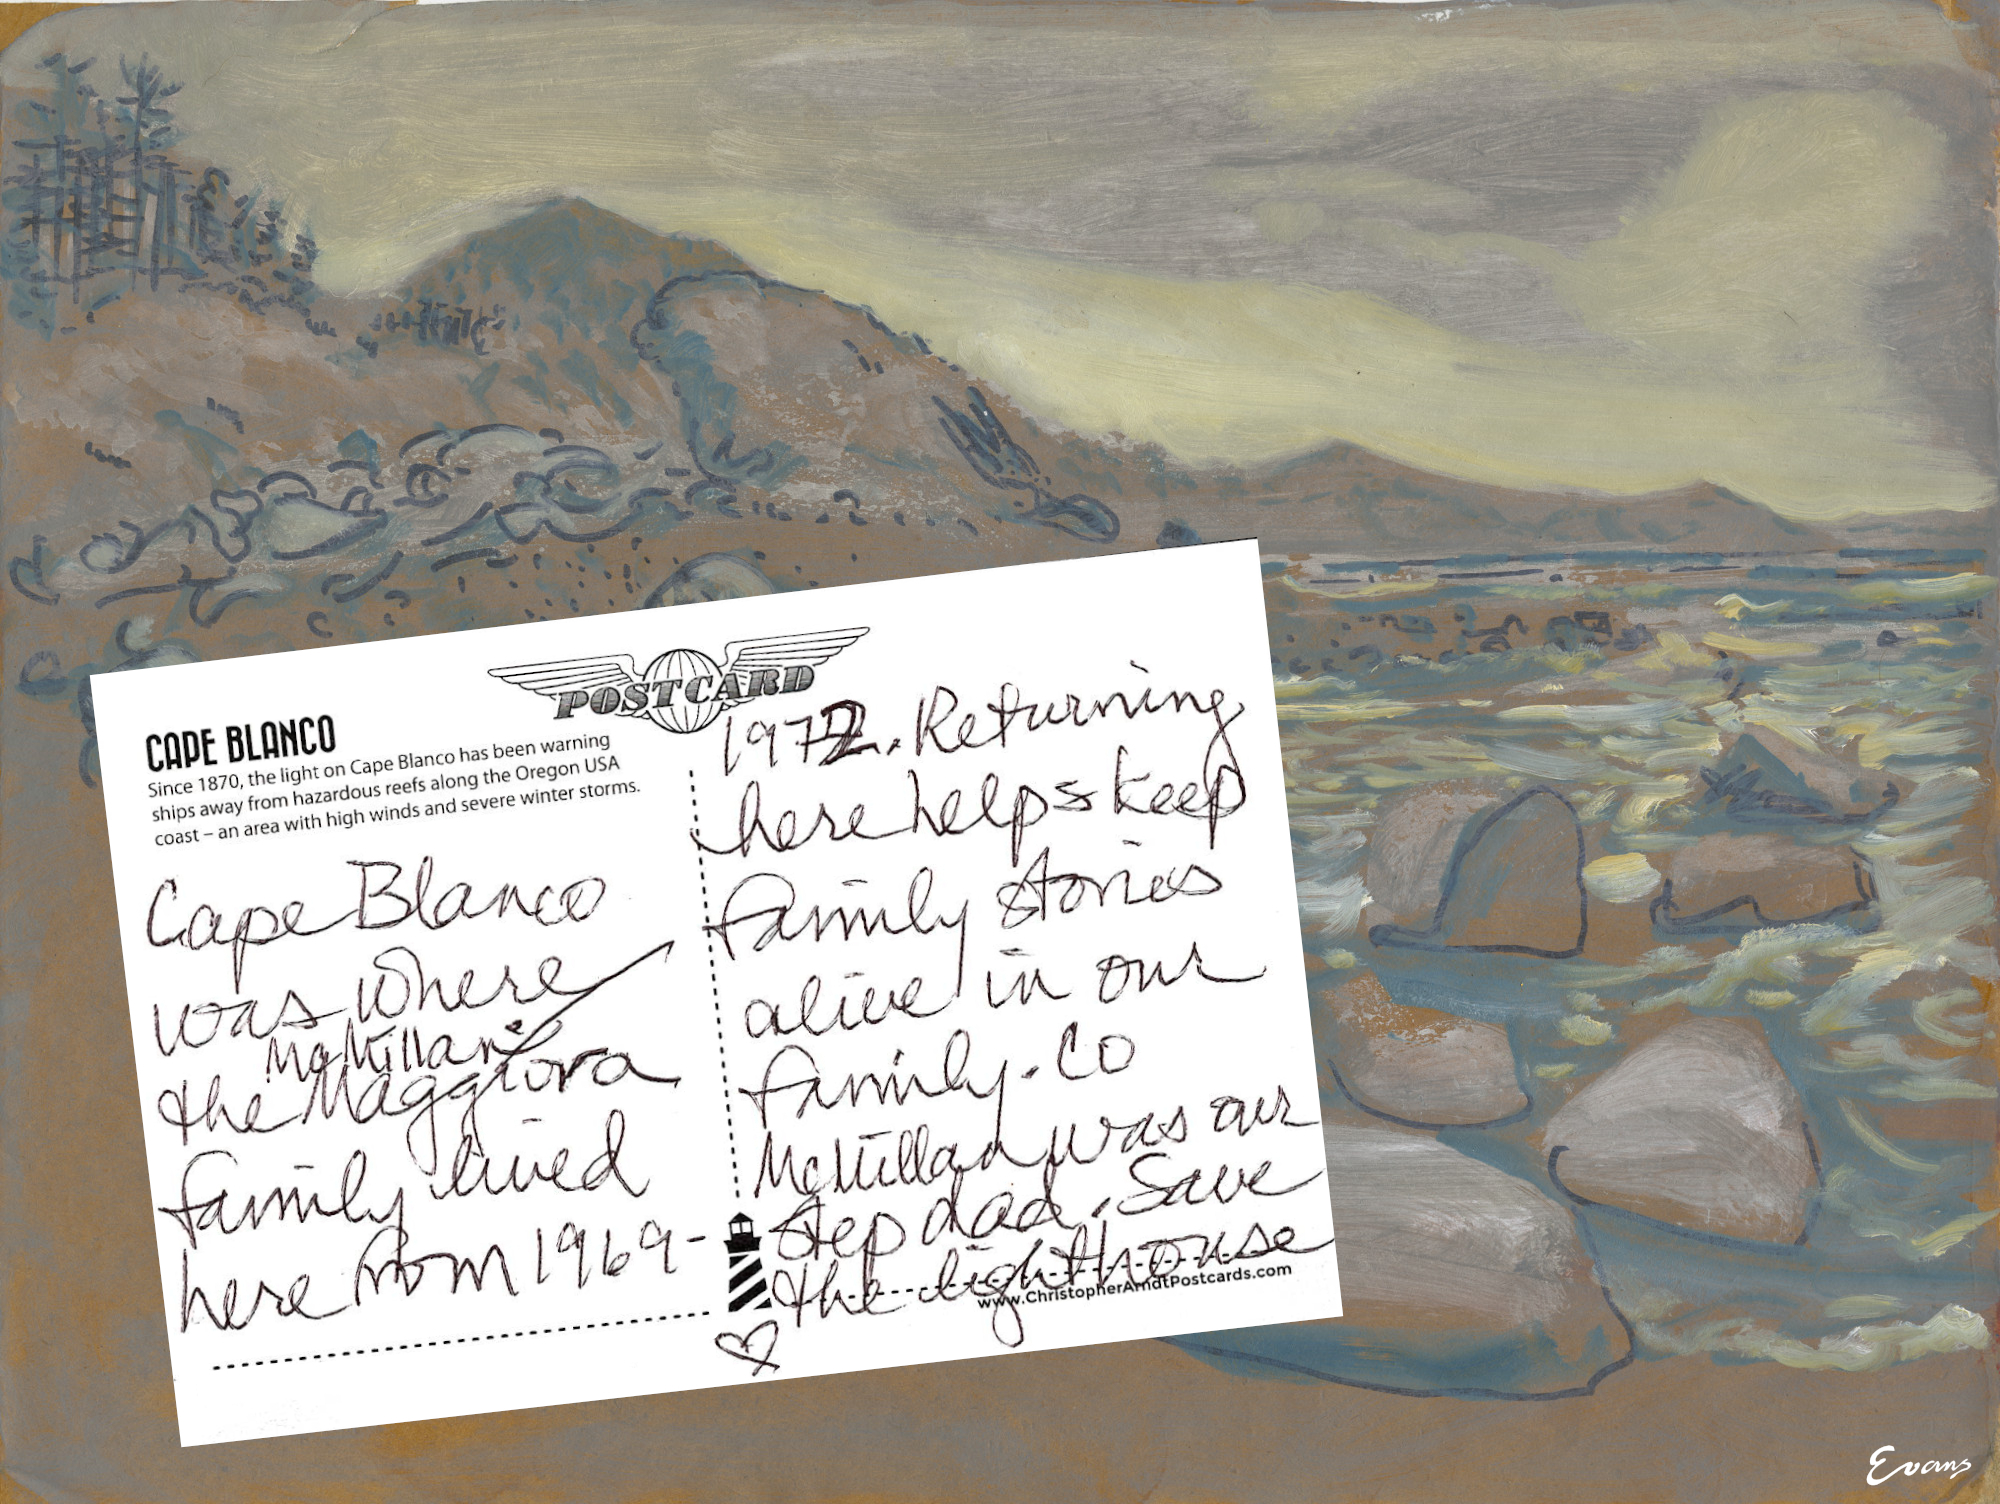 POSTCARD
CAPE BLANCO
Since 1870, the light on Cape Blanco has been warning
ships away from hazardous reefs along the Oregon USA
coast – an area with high winds and severe winter storms.
Cape Blanco
was where
McMillan/
the Maggiora
family lived
here from 1969-
1972. Returning
here helps keep
family stories
alive in our
family. CO
McMillan was our
step dad. Save
the lighthouse
♡
www.ChristopherArndtPostcards.com
Evans